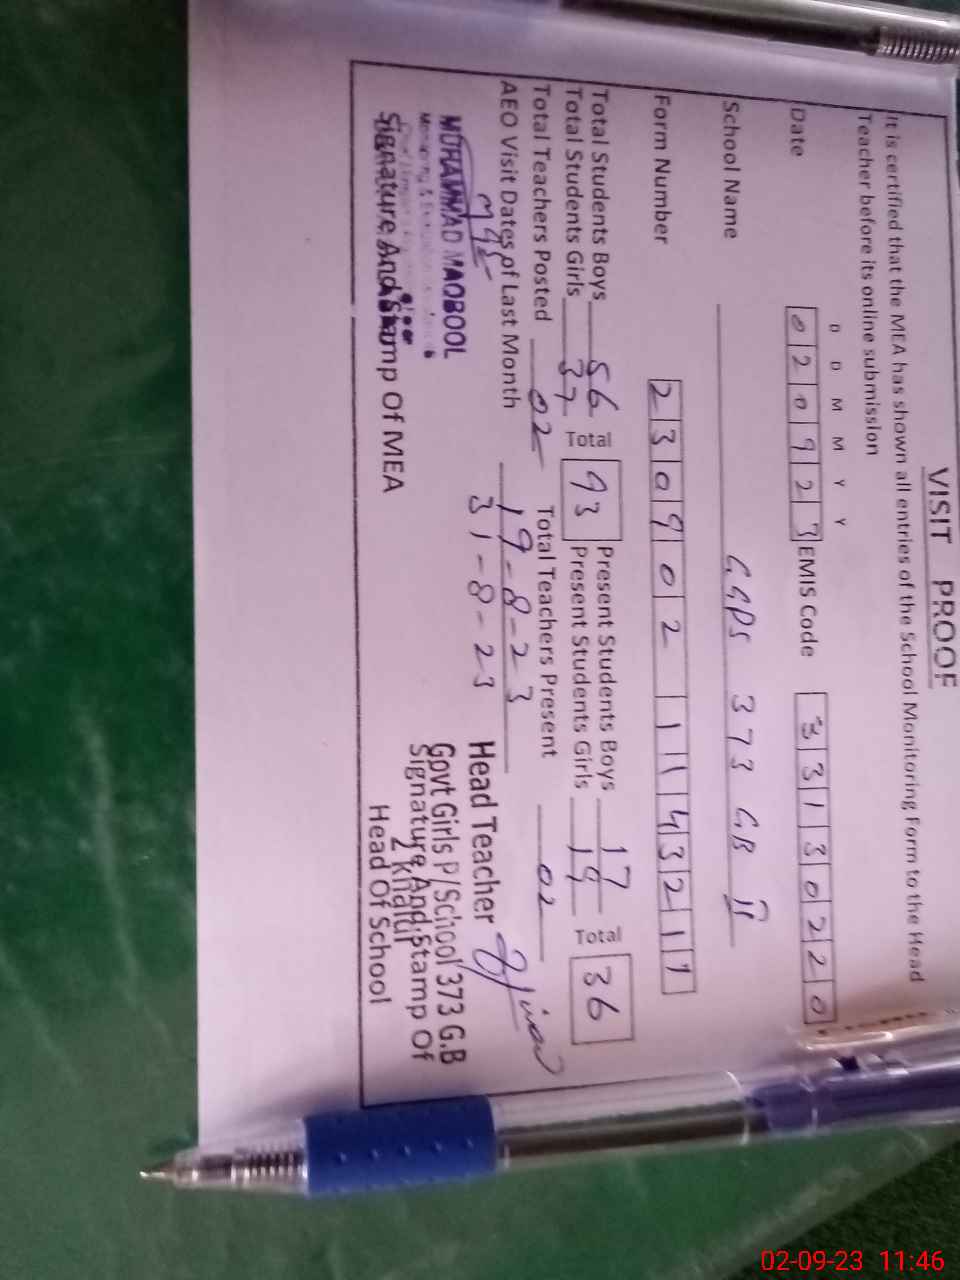 VISIT PROOF
It is certified that the MEA has shown all entries of the School Monitoring Form to the Head
Teacher before its online submission
D D M M Y Y
Date 0 2 0 9 2 3 EMIS Code 3 3 1 3 0 2 2 0
School Name GGPS 373 GB II
Form Number 2 3 0 9 0 2 1 1 4 3 2 1 1
Total Students Boys 56 Total 93 Present Students Boys 17 Total 36
Total Students Girls 37 Present Students Girls 19
Total Teachers Posted 02 Total Teachers Present 02
AEO Visit Dates of Last Month 19-8-23
31-8-23
MUHAMMAD MAQBOOL
Signature And Stamp Of MEA
Head Teacher
Govt Girls P/School 373 G.B
Signature And Stamp Of
Head Of School
02-09-23 11:46